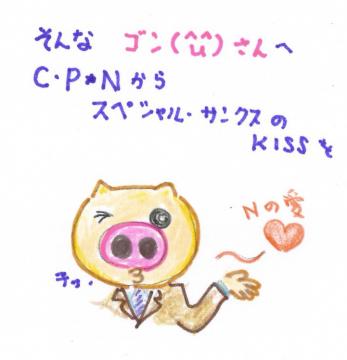 そんな ゴン(^ü^)さんへ
C・P*Nから
スペシャル・サンクスの
KISSを
Nの愛
チュ・